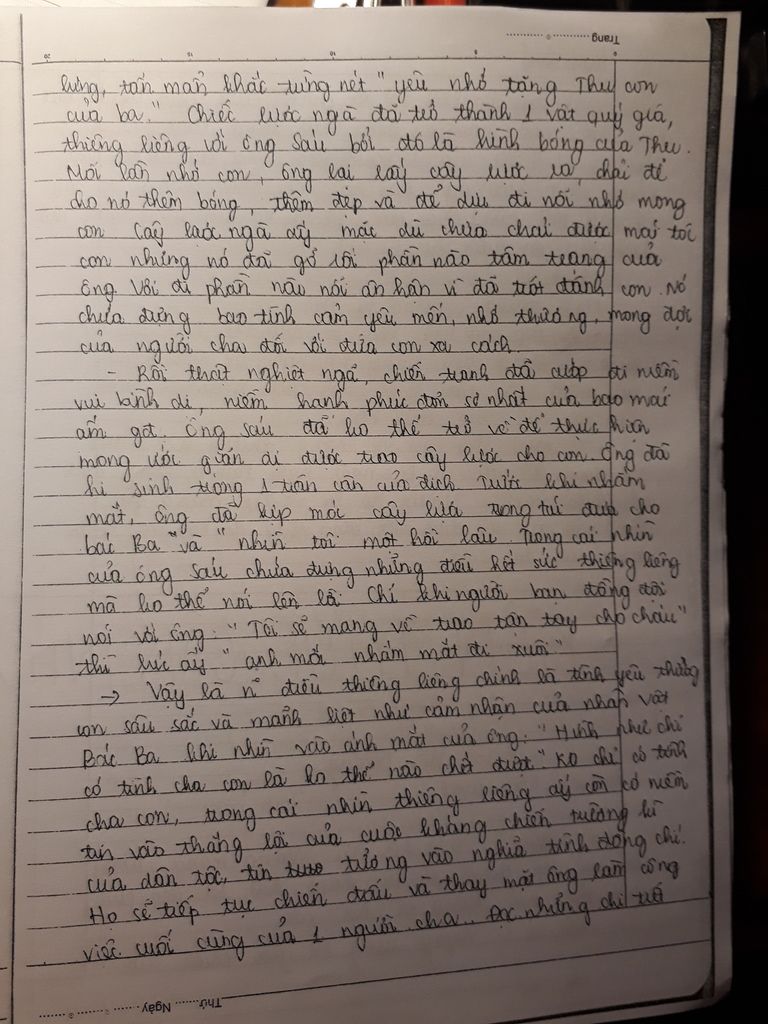 Trang
lưng, tẩn mẩn khắc từng nét "yêu nhớ tặng Thu con
của ba." Chiếc lược ngà đã trở thành 1 vật quý giá,
thiêng liêng với ông Sáu bởi đó là hình bóng của Thu.
Mỗi lần nhớ con, ông lại lấy cây lược ra, chải để
cho nó thêm bóng, thêm đẹp và để dịu đi nỗi nhớ mong
con Cây lược ngà ấy mặc dù chưa chải được mái tóc
con nhưng nó đã gỡ rối phần nào tâm trạng của
ông Vơi đi phần nào nỗi ân hận vì đã trót đánh con. Nó
chứa đựng bao tình cảm yêu mến, nhớ thương, mong đợi
của người cha đối với đứa con xa cách.
- Rồi thật nghiệt ngã, chiến tranh đã cướp đi niềm
vui bình dị, niềm hạnh phúc đơn sơ nhất của bao mái
ấm gđ. Ông Sáu đã ko thể trở về để thực hiện
mong ước giản dị được trao cây lược cho con. Ông đã
hi sinh trong 1 trận càn của địch Trước khi nhắm
mắt, ông đã kịp móc cây lược trong túi đưa cho
bác Ba "và "nhìn tôi một hồi lâu. Trong cái nhìn
của ông Sáu chứa đựng những điều hết sức thiêng liêng
mà ko thể nói lên lời Chỉ khi người bạn đồng đội
nói với ông: "Tôi sẽ mang về trao tận tay cho cháu"
thì lúc ấy "anh mới nhắm mắt đi xuôi"
→ Vậy là n² điều thiêng liêng chính là tình yêu thương
con sâu sắc và mãnh liệt như cảm nhận của nhân vật
Bác Ba khi nhìn vào ánh mắt của ông: "Hình như chỉ
có tình cha con là ko thể nào chết được". Ko chỉ có tình
cha con, trong cái nhìn thiêng liêng ấy còn có niềm
tin vào thắng lợi của cuộc kháng chiến trường kì
của dân tộc, tin tưởng vào nghĩa tình đồng chí.
Họ sẽ tiếp tục chiến đấu và thay mặt ông làm công
việc cuối cùng của 1 người cha. Đọc những chi tiết
Thứ Ngày